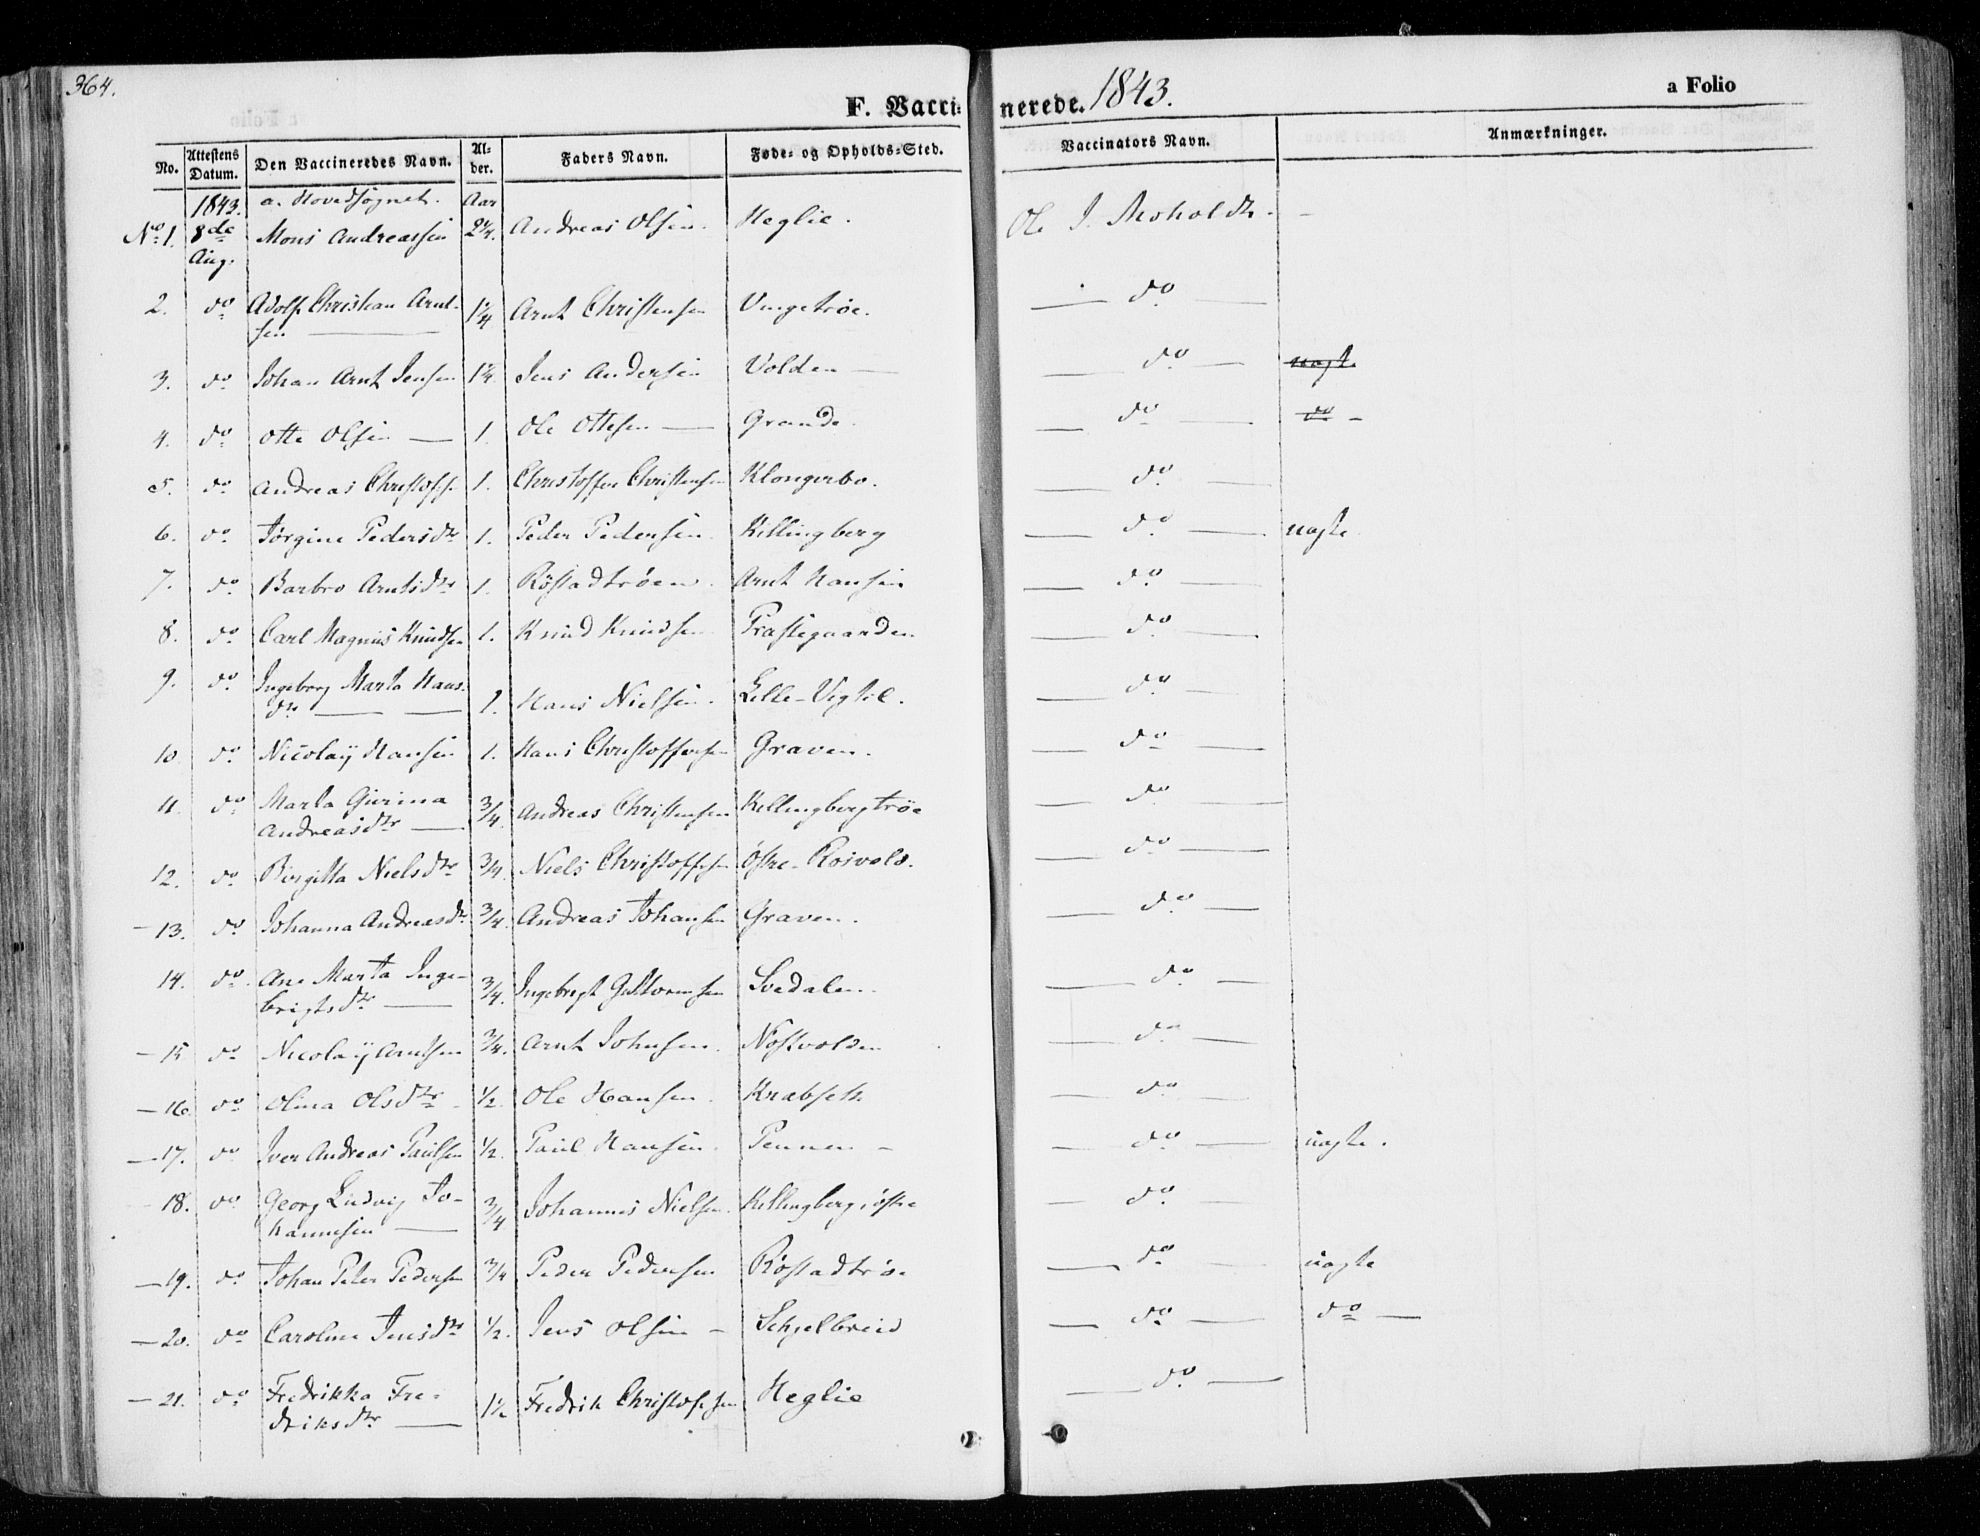 364.
F. Vaccinerede. 1843.
a Folio
No. Attestens Datum. Den Vaccineredes Navn. Al-der. Faders Navn. Føde- og Opholds-Sted. Vaccinators Navn. Anmærkninger.
1843. a. Hovedsognet. Aar
No 1. 8de Mons Andreassen 2 1/4. Andreas Olsen. Heglie. Ole J.
Aug.
2. do Adolf Christian Arnt- 1 1/4 Arnt Christensen Vingetrøe. — do —
sen —
3. do Johan Arnt Jensen 1 1/4. Jens Andersen Volden — — do —
4. do Otte Olsen — 1. Ole Ottesen — Grande. — do — do —
5. do Andreas Christofs. 1. Christoffer Christensen Klongerbo. — do —
6. do Jørgine Pedersdtr 1. Peder Pedersen. Killingberg — do — uægte
7. do Barbro Arntsdtr 1. Røstadtrøen. Arnt Hansen — do —
8. do Carl Magnus Knudsen 1. Knud Knudsen Præstegaarden — do —
9. do Ingeborg Marta Hans- — do —
dtr — — 1. Hans Nielsen. Lille-Vigtil.
10 do Nicolaÿ Hansen 1. Hans Christoffersen Graven. — do —
11. do Marta Gurina 3/4. Andreas Christensen Killingbergtrøe — do —
Andreasdtr —
12. do Birgitta Nielsdtr 3/4. Niels Christoffersen Østre-Rosvold. — do —
— 13. do Johanna Andreasdtr 3/4. Andreas Johansen Graven. — do —
14. do Ane Marta Inge- 3/4. Ingebrigt Guttormsen Svedalen. — do —
brigtsdtr —
— 15 do Nicolaÿ Arntsen 3/4. Arnt Johnsen. Nøstvolden — do —
— 16. do Olina Olsdtr 1/2. Ole Hansen. Knabseth — do —
— 17. do Iver Andreas Paulsen 1/2. Paul Hansen. Pennen — — do — uægte.
18. do Georg Ludvig Jo- 3/4 Johannes Nielsen. Killingberg, østre — do —
hannesen —
— 19. do Johan Peter Pedersen 3/4 Peder Pedersen Røstadtrøe — do — uægte
— 20. do Caroline Jensdtr 1/2. Jens Olsen — Schjelbreid — do — do —
— 21. do Fredrikka Fre- 1 1/2 Fredrik Christofersen Heglie — do —
driksdtr —